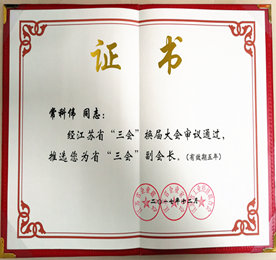 证书
常科伟 同志：
经江苏省“三会”换届大会审议通过，
推选您为省“三会”副会长。(有效期五年)
二〇一七年十二月